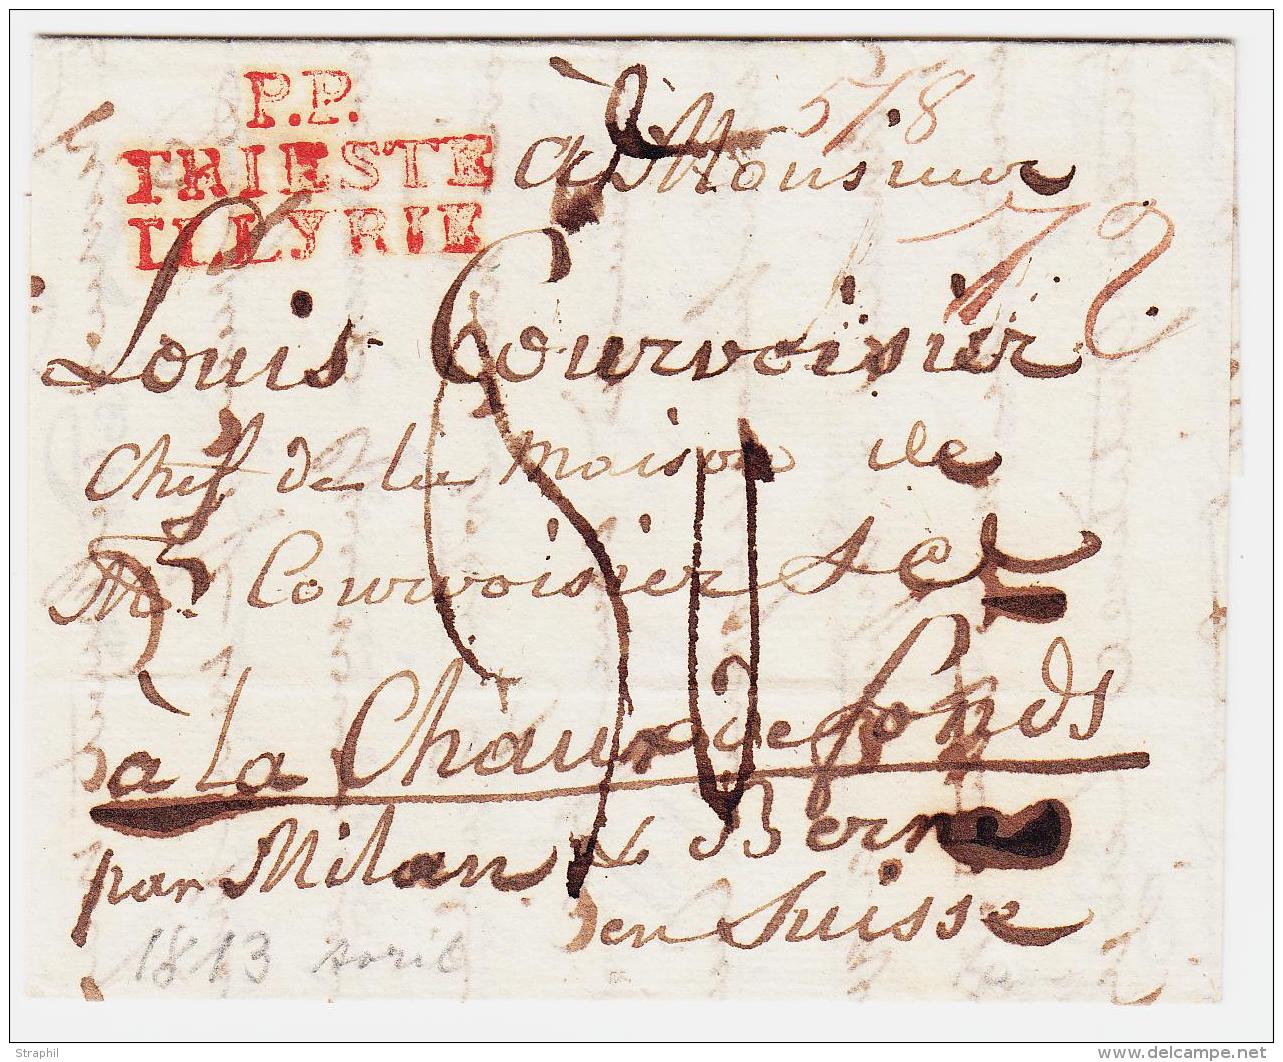 P.P.
TRIESTE
ILLYRIE
à Monsieur
Louis Courvoisier
Chef de la Maison de
Mr. Courvoisier & Ce
à La Chaux de fonds
par Milan & Berne
en Suisse
1813 Avril
Straphil
www.delcampe.net